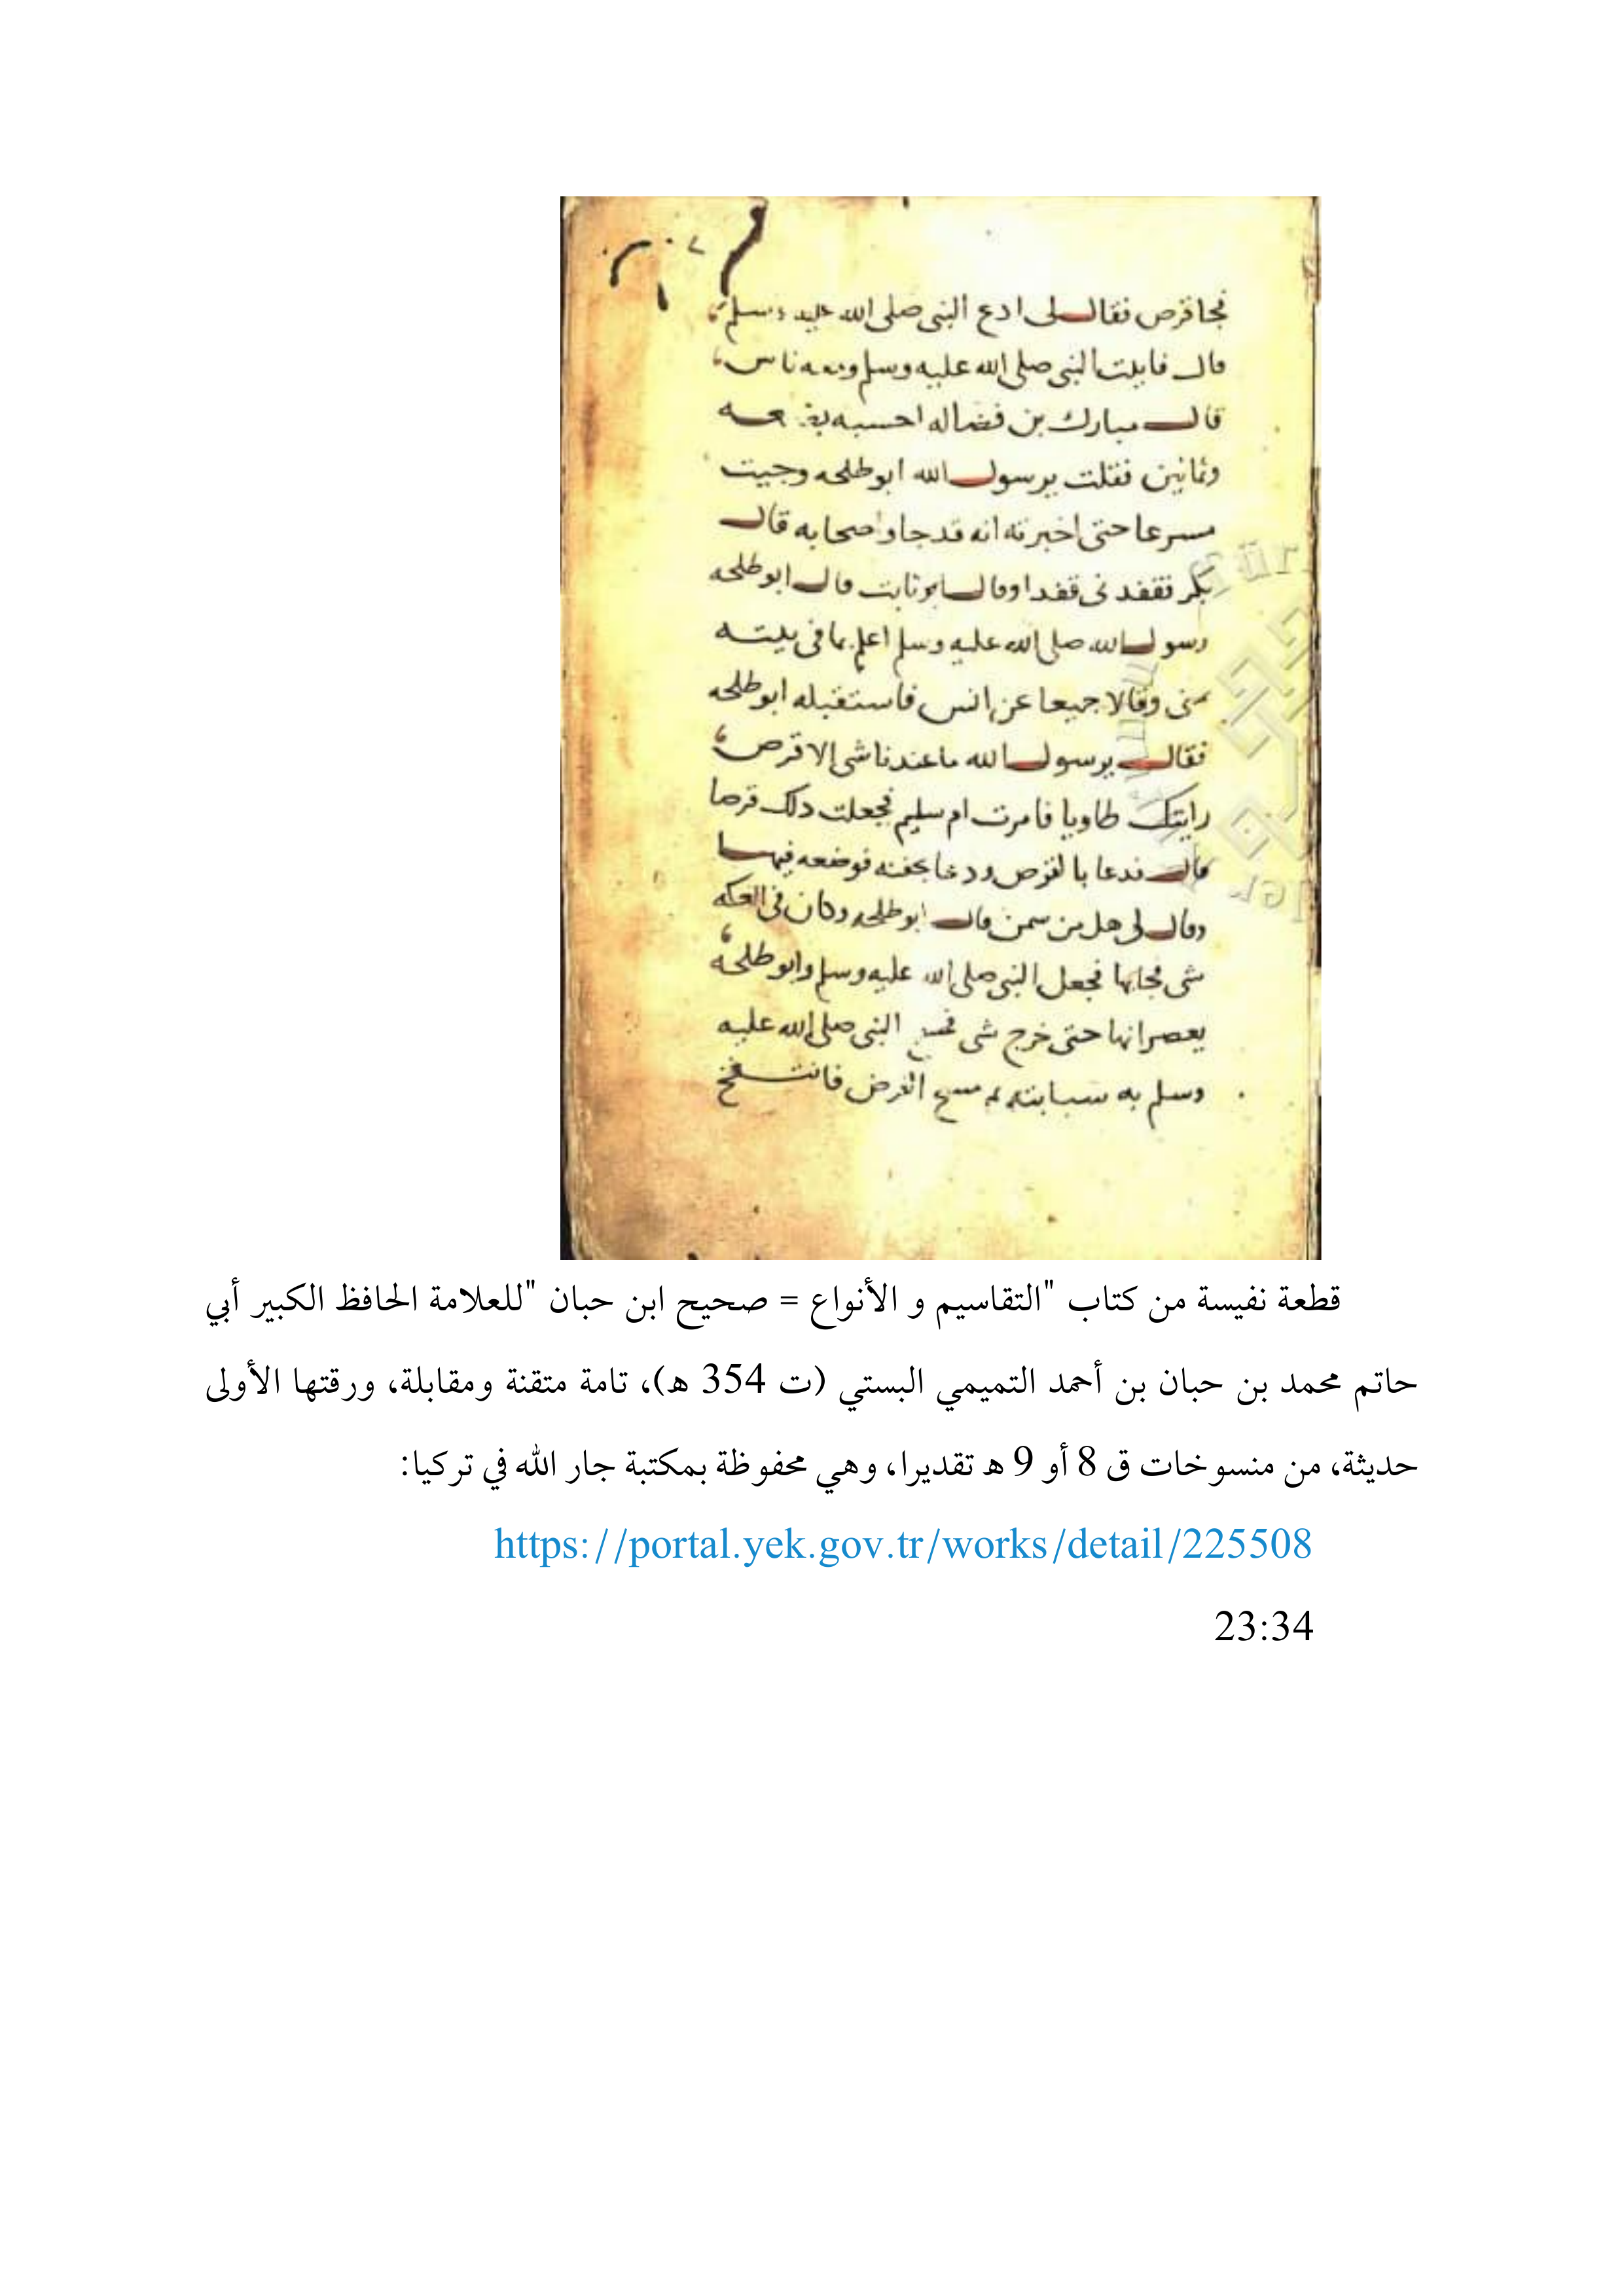 فجا قرص فقال لى ادع النبى صلى الله عليه وسلم
قال فاىلت النبى صلى الله عليه وسلم ومعه ناس
قال مبارك بن فضاله احسبه بضعه
وثمانين فقلت يرسول الله ابو طلحه وجيت
مسرعا حتى اخبرته انه قد جا واصحابه قال
بكر فقفدنى قفدا وقال ثابت قال ابو طلحه
رسول الله صلى الله عليه وسلم اعلم بما فى بيته
منى وقالا جميعا عن انس فاستقبله ابو طلحه
فقال يرسول الله ما عندنا شى الا قرص
رايتك طاويا فامرت ام سليم فجعلت ذلك قرصا
قال فدعا بالقرص ودعا بجفنه فوضعه فيها
وقال لى هل من سمن قال ابو طلحه وكان فى العكه
شى فجا بها فجعل النبى صلى الله عليه وسلم وابو طلحه
يعصرانها حتى خرج شى فمسح النبى صلى الله عليه
وسلم به سبابته ثم مسح القرص فانتفخ
قطعة نفيسة من كتاب "التقاسيم و الأنواع = صحيح ابن حبان "للعلامة الحافظ الكبير أبي
حاتم محمد بن حبان بن أحمد التميمي البستي (ت 354 ه)، تامة متقنة ومقابلة، ورقتها الأولى
حديثة، من منسوخات ق 8 أو 9 ه تقديرا، وهي محفوظة بمكتبة جار الله في تركيا:
https://portal.yek.gov.tr/works/detail/225508
23:34